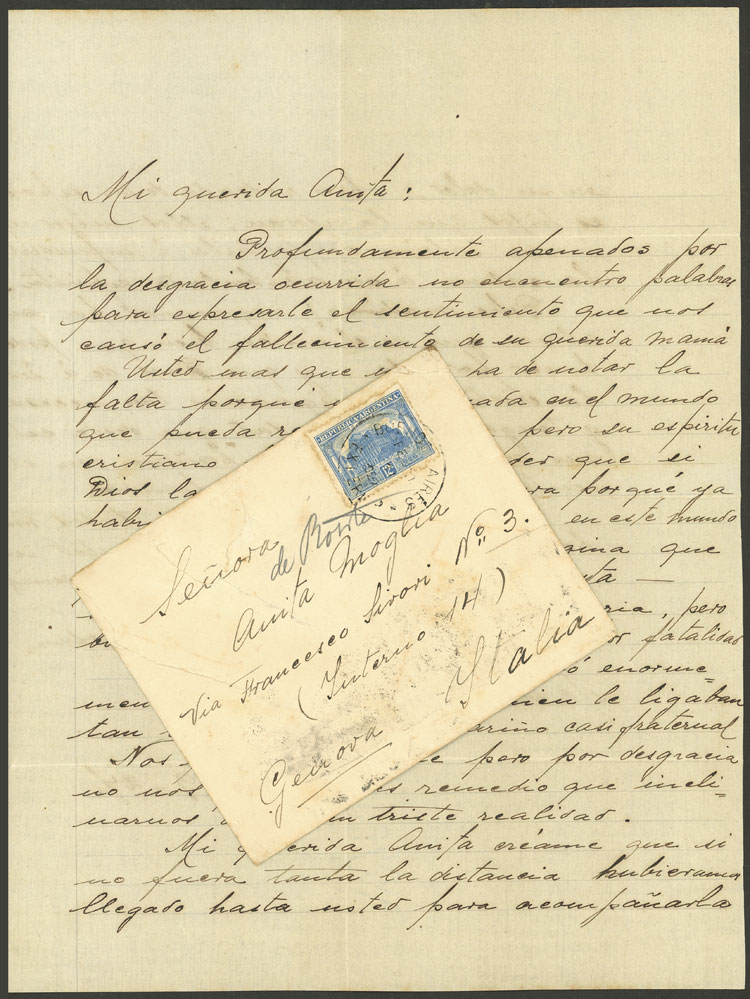 Mi querida Anita:
Profundamente apenados por
la desgracia ocurrida no encuentro palabras
para espresarle el sentimiento que nos
causó el fallecimiento de su querida mamá
Usted mas que ha de notar la
falta porque nada en el mundo
que pueda pero su espiritu
cristiano que si
Dios la porqué ya
en este mundo
que
pero
fatalidad
enorme=
le ligaban
tan casi fraternal
Nos pero por desgracia
no nos remedio que incli=
narnos triste realidad.
Mi querida Anita créame que si
no fuera tanta la distancia hubieramos
llegado hasta usted para acompañarla
REPUBLICA ARGENTINA
12
AIRES
Señora
de Rosvile
Anita Moglia
Via Francesco Sivori No. 3.
(Interno 14)
Genova
Italia